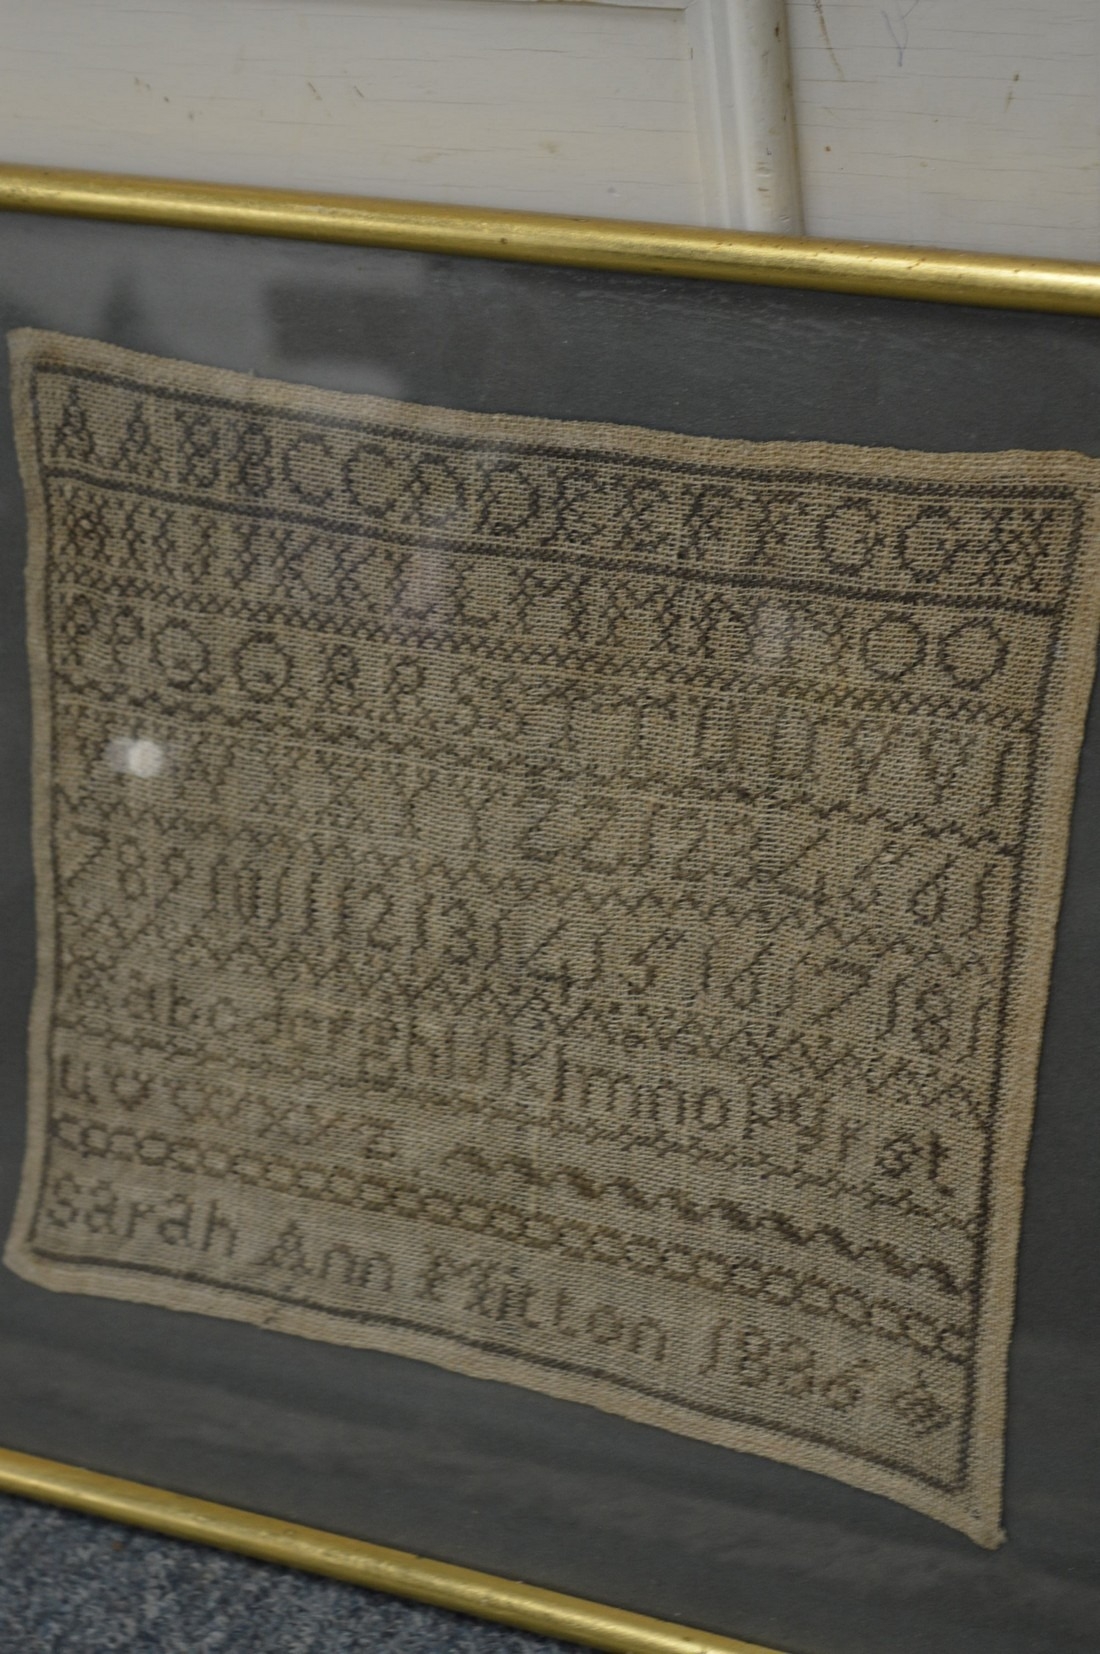 A A B B C C D D E E F F G G H
H I I K K L L M M N N O O
P P Q Q R R S S T T U U V V
W W X X Y Y Z Z 1 2 3 4 5 6
7 8 9 10 11 12 13 14 15 16 17 18
a b c d e f g h i j k l m n o p q r s t
u v w x y z
Sarah Ann 1836